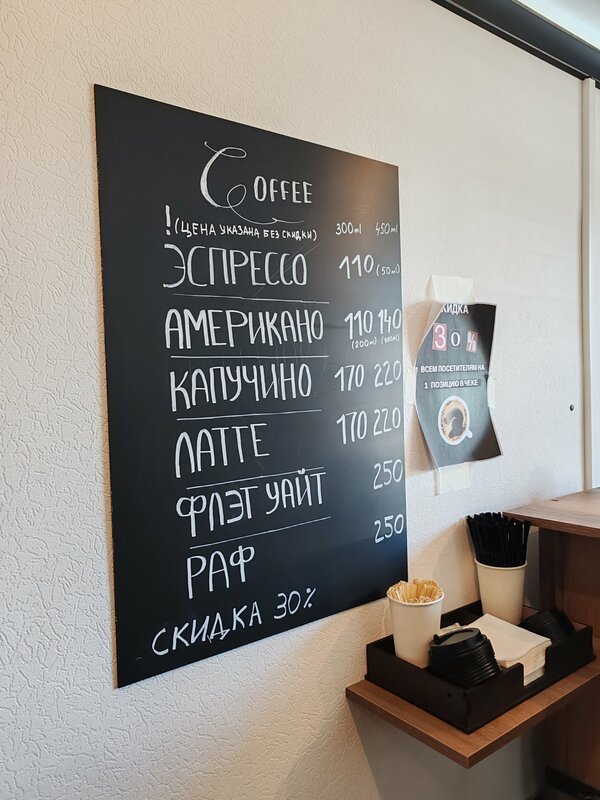 COFFEE
!(ЦЕНА УКАЗАНА БЕЗ СКИДКИ) 300ml 450ml
ЭСПРЕССО 110 (50ml)
АМЕРИКАНО 110 140
(200ml) (300ml)
КАПУЧИНО 170 220
ЛАТТЕ 170 220
ФЛЭТ УАЙТ 250
РАФ 250
СКИДКА 30%
СКИДКА
30%
ВСЕМ ПОСЕТИТЕЛЯМ НА
1 ПОЗИЦИЮ В ЧЕКЕ